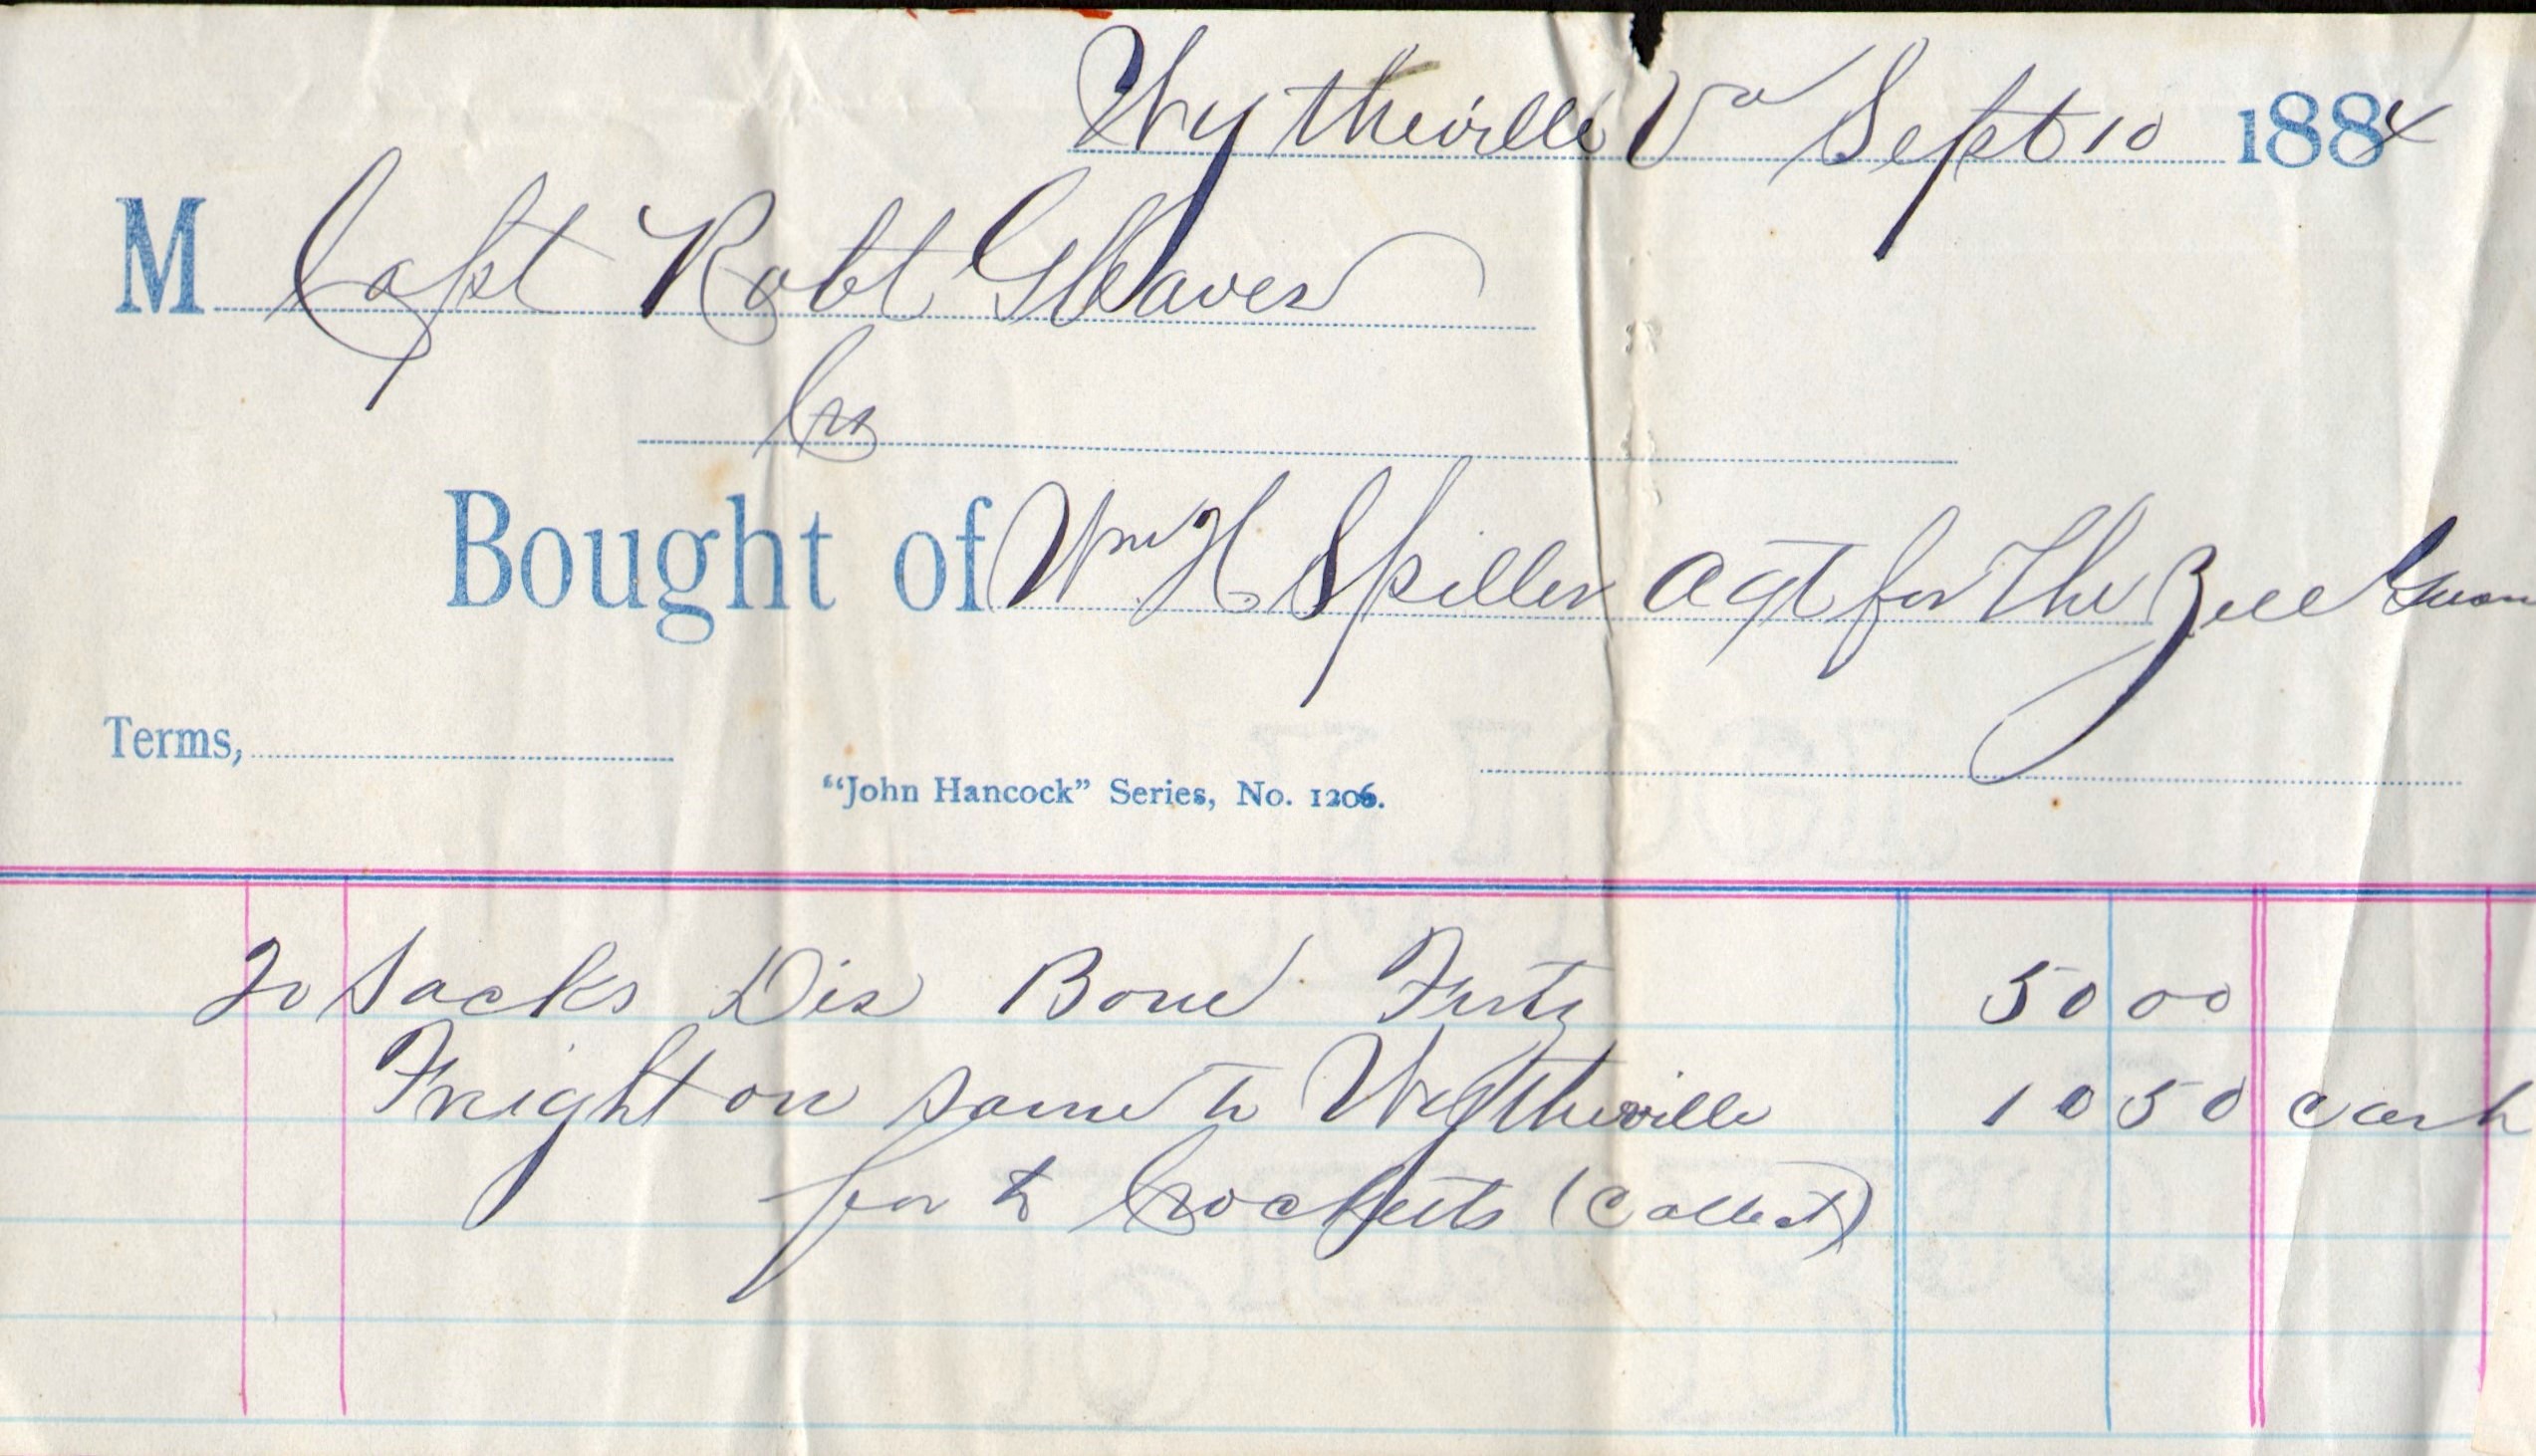 Wytheville Va Sept 10 1884
M Capt Robt Gleaves
Bought of Wm H Spiller Agt for The Zell Guano
Terms,
“John Hancock” Series, No. 1206.
20 Sacks Dis Bone Fertz 50 00
Freight on same to Wytheville 10 50 cash
for to Crocketts (Collect)